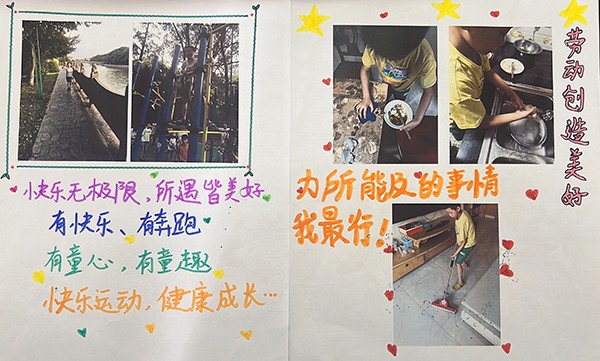 快乐无极限，所遇皆美好
有快乐、有奔跑
有童心，有童趣
快乐运动，健康成长…
劳动创造美好
力所能及的事情
我最行！